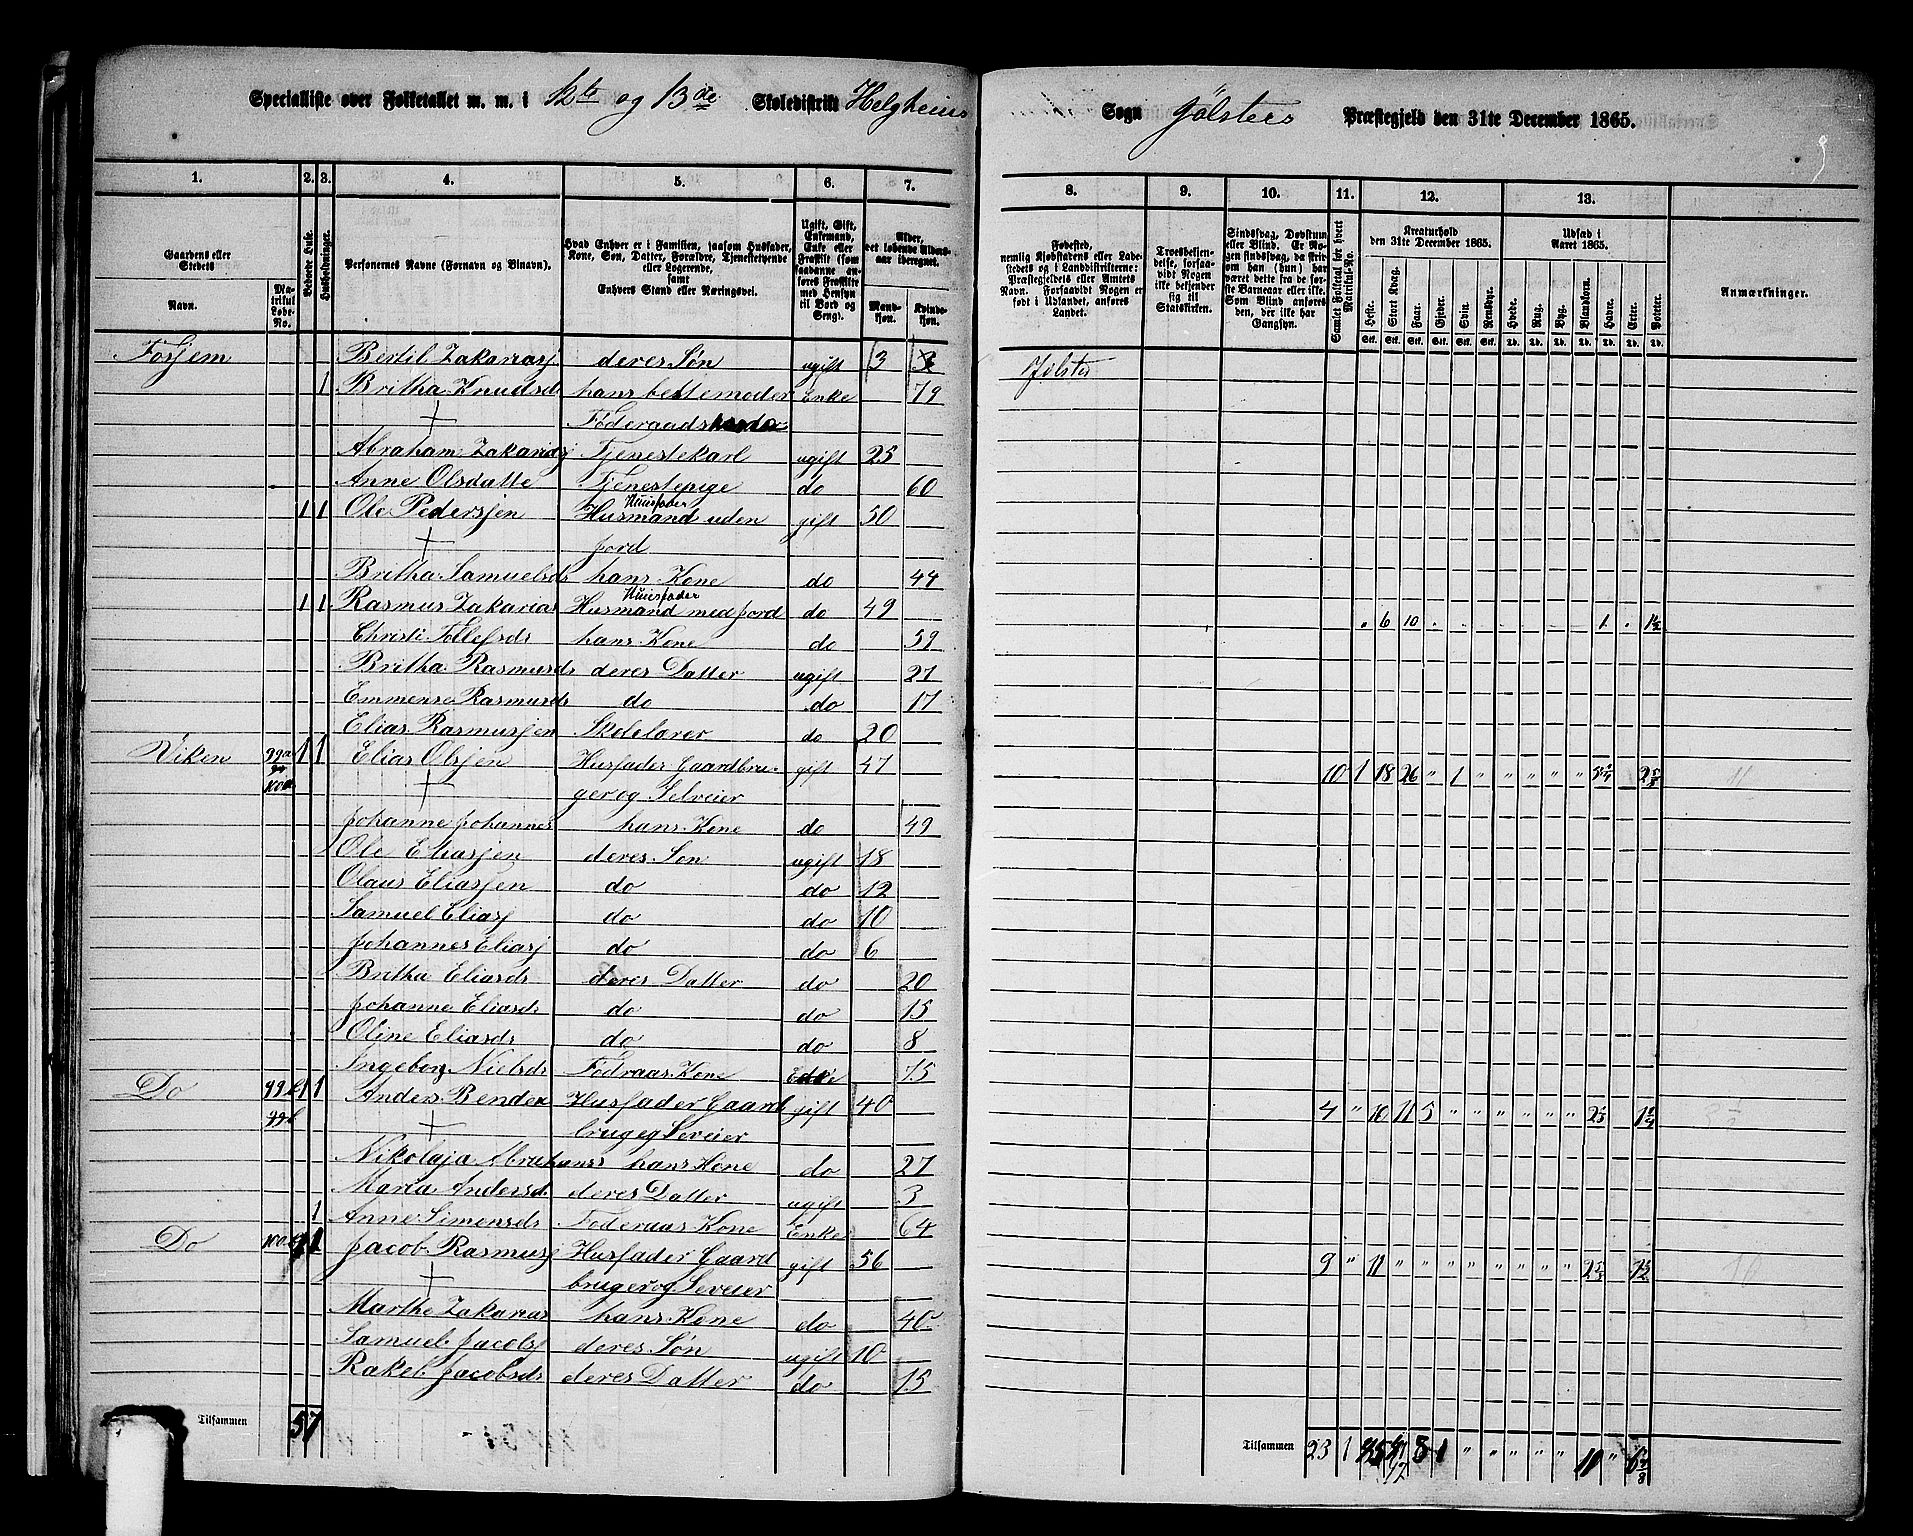 Specialliste over Folketallet m. m. i 12te og 13de Skoledistrikt Helgheims Sogn Jølsters Præstegjeld den 31te December 1865.
9
1. 2. 3. 4. 5. 6. 7. 8. 9. 10. 11. 12. 13.
Gaardens eller Stedets
Navn. Matrikul Løbe-No.
Beboede Huse.
Husholdninger.
Personernes Navne (Fornavn og Binavn).
Hvad Enhver er i Familien, saasom Husfader, Kone, Søn, Datter, Forældre, Tjenestetyende eller Logerende, samt Enhvers Stand eller Næringsvei.
Ugift, Gift, Enkemand, Enke eller Fraskilt (som saadanne anføres Fraskilte med Hensyn til Bord og Seng).
Alder, det løbende Alders-aar iberegnet.
Mandkjøn. Kvindekjøn.
Fødested, nemlig Kjøbstadens eller Ladestedets og i Landdistrikterne: Præstegjeldets eller Amtets Navn. Forsaavidt Nogen er født i Udlandet, anføres Landet.
Troesbekjendelse, forsaavidt Nogen ikke bekjender sig til Statskirken.
Sindssvag, Døvstum eller Blind. Er Nogen sindssvag, da skrives om han (hun) har været det fra de første Barneaar eller ikke. Som Blind anføres den, der ikke har Gangsyn.
Samlet Folketal for hvert Matrikul-No.
Kreaturhold den 31te December 1865.
Heste. Stort Kvæg. Faar. Gjeder. Svin. Rensdyr.
Udsæd i Aaret 1865.
Hvede. Rug. Byg. Blandkorn. Havre. Erter. Poteter.
Anmærkninger.
Fosjem Bertil Zakariasj deres Søn ugift 3 Jølster
1 Britha Knudsd hans bestemoder Enke 79
Føderaads
Abraham Zakariasj Tjenestekarl ugift 25
Anne Olsdatte Tjenestepige do 60
1 1 Ole Pedersjen Huusfader Husmand uden gift 50
jord
Britha Samuelsd hans Kone do 44
1 1 Rasmus Zakarias Huusfader Husmand med jord do 49 6 10 1
Christi Tollefsds hans Kone do 59
Britha Rasmusds deres Datter ugift 27
Emmense Rasmusds do do 17
Elias Rasmusjen Skolelærer do 20
Viken 99a 1 1 Elias Olsjen Husfader Gaardbru- gift 47 10 1 18 26 " 1 " " " " "
100a ger og Selveier
Johanne Johannes hans Kone do 49
Ole Eliasjen deres Søn ugift 18
Olaus Eliasjen do do 12
Samuel Eliasj do do 10
Johannes Eliasj do do 6
Britha Eliasds deres Datter do 20
Johanne Eliasds do do 15
Oline Eliasds do do 8
Ingeborg Nielsds Fødraas Kone Enke 75
Do 99b 1 1 Anders Bendex Husfader Gaard gift 40 4 " 10 11 5 " " " " " "
99b brug og Seveier
Nikolaja Abrahams hans Kone do 27
Maria Andersd deres Datter ugift 3
1 Anne Simensds Føderaas Kone Enke 64
Do 100b 1 1 Jacob Rasmusj Husfader Gaard gift 56 9 " 11 " " " " " " " "
bruger og Seveier
Marthe Zakarias hans Kone do 40
Samuel Jacobsj deres Søn ugift 10
Rakel Jacobsds deres Datter do 15
Tilsammen 5 7
Tilsammen 23 1